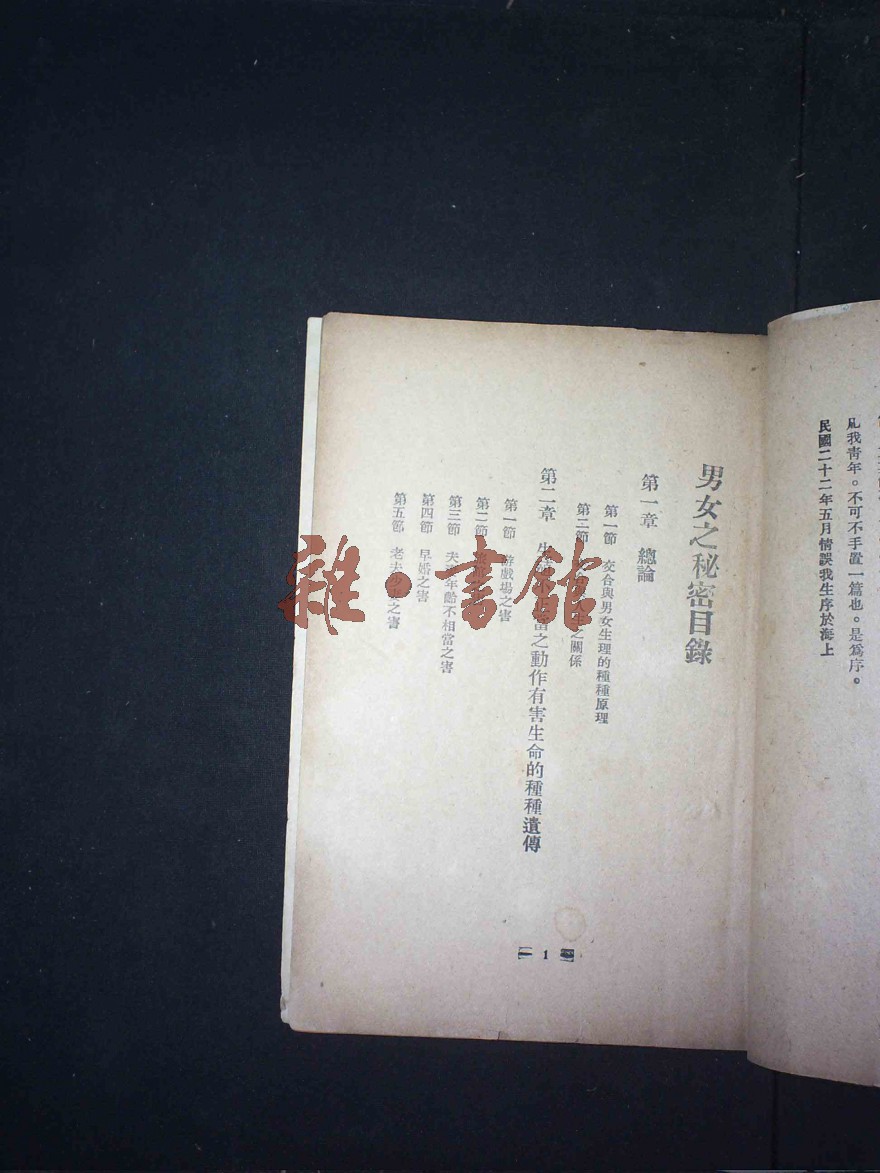 凡我靑年。不可不手置一篇也。是爲序。
民國二十二年五月情誤我生序於海上
男女之秘密目錄
第一章 總論
第一節 交合與男女生理的種種原理
第二節 之關係
第二章 生 之動作有害生命的種種遺傳
第一節 游戲場之害
第二節
第三節 夫妻年齡不相當之害
第四節 早婚之害
第五節 老夫少妻之害
1
雜·書館